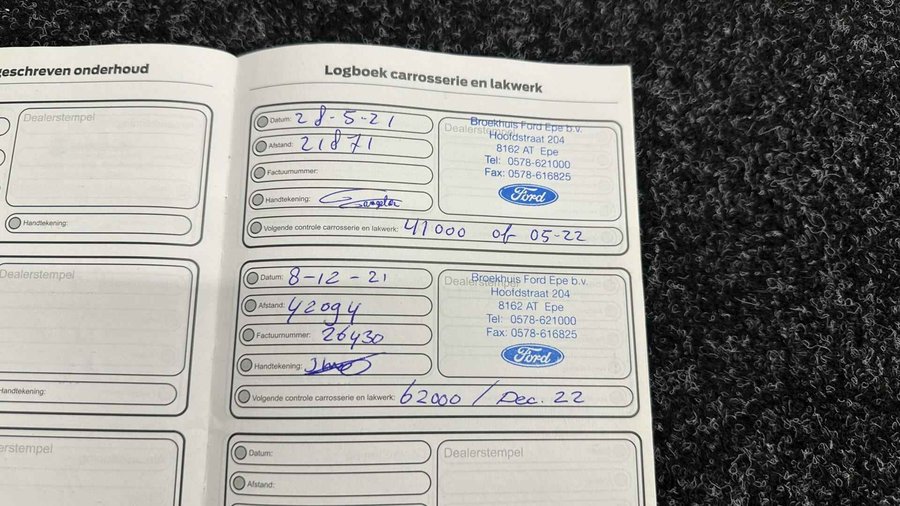 geschreven onderhoud
Dealerstempel
Handtekening:
Dealerstempel
Handtekening:
erstempel
Logboek carrosserie en lakwerk
Datum: 28-5-21
Afstand: 21871
Factuurnummer:
Handtekening:
Volgende controle carrosserie en lakwerk: 41000 of 05-22
Dealerstempel
Broekhuis Ford Epe b.v.
Hoofdstraat 204
8162 AT Epe
Tel: 0578-621000
Fax: 0578-616825
Ford
Datum: 8-12-21
Afstand: 42094
Factuurnummer: 26430
Handtekening:
Volgende controle carrosserie en lakwerk: 62000 / Dec. 22
Dealerstempel
Broekhuis Ford Epe b.v.
Hoofdstraat 204
8162 AT Epe
Tel: 0578-621000
Fax: 0578-616825
Ford
Datum:
Afstand:
Dealerstempel